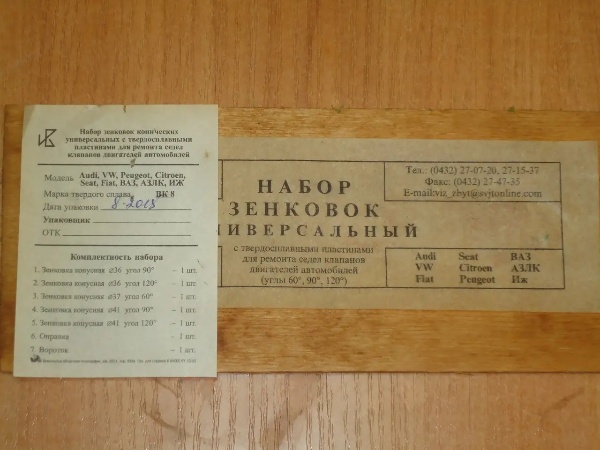 Набор зенковок конических
универсальных с твердосплавными
пластинами для ремонта седел
клапанов двигателей автомобилей
Модель Audi, VW, Peugeot, Citroen,
Seat, Fiat, ВАЗ, АЗЛК, ИЖ
Марка твердого сплава ВК 8
Дата упаковки
Упаковщик
ОТК
Комплектность набора
1. Зенковка конусная ⌀36 угол 90° – 1 шт.
2. Зенковка конусная ⌀36 угол 120° – 1 шт.
3. Зенковка конусная ⌀37 угол 60° – 1 шт.
4. Зенковка конусная ⌀41 угол 90° – 1 шт.
5. Зенковка конусная ⌀41 угол 120° – 1 шт.
6. Оправка – 1 шт.
7. Вороток – 1 шт.
НАБОР
ЗЕНКОВОК
ИВЕРСАЛЬНЫЙ
с твердосплавными пластинами
для ремонта седел клапанов
двигателей автомобилей
(углы 60°, 90°, 120°)
Тел.: (0432) 27-07-20, 27-15-37
Факс: (0432) 27-47-35
E-mail:viz_zbyt@svjtonline.com
Audi Seat ВАЗ
VW Citroen АЗЛК
Fiat Peugeot Иж